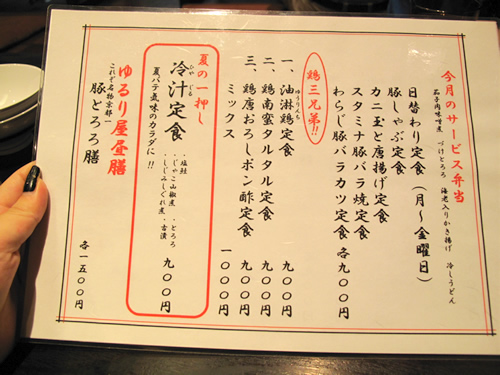 今月のサービス弁当
茄子肉味噌煮 づけとろろ 海老入りかき揚げ 冷しうどん
日替わり定食(月~金曜日)
豚しゃぶ定食
カニ玉と唐揚げ定食
スタミナ豚バラ焼定食
わらじ豚バラカツ定食 各九〇〇円
鶏三兄弟!!
ゆうりんち
一、油淋鶏定食 九〇〇円
二、鶏南蛮タルタル定食 九〇〇円
三、鶏唐おろしポン酢定食 九〇〇円
ミックス 一〇〇〇円
夏の一押し
ひや じる
冷汁定食 九〇〇円
・塩鮭
・じゃこ山椒煮 ・とろろ
・しじみしぐれ煮 ・香漬
夏バテ気味のカラダに!!
ゆるり屋昼膳
これぞ名物京都一
豚とろろ膳 各一五〇〇円